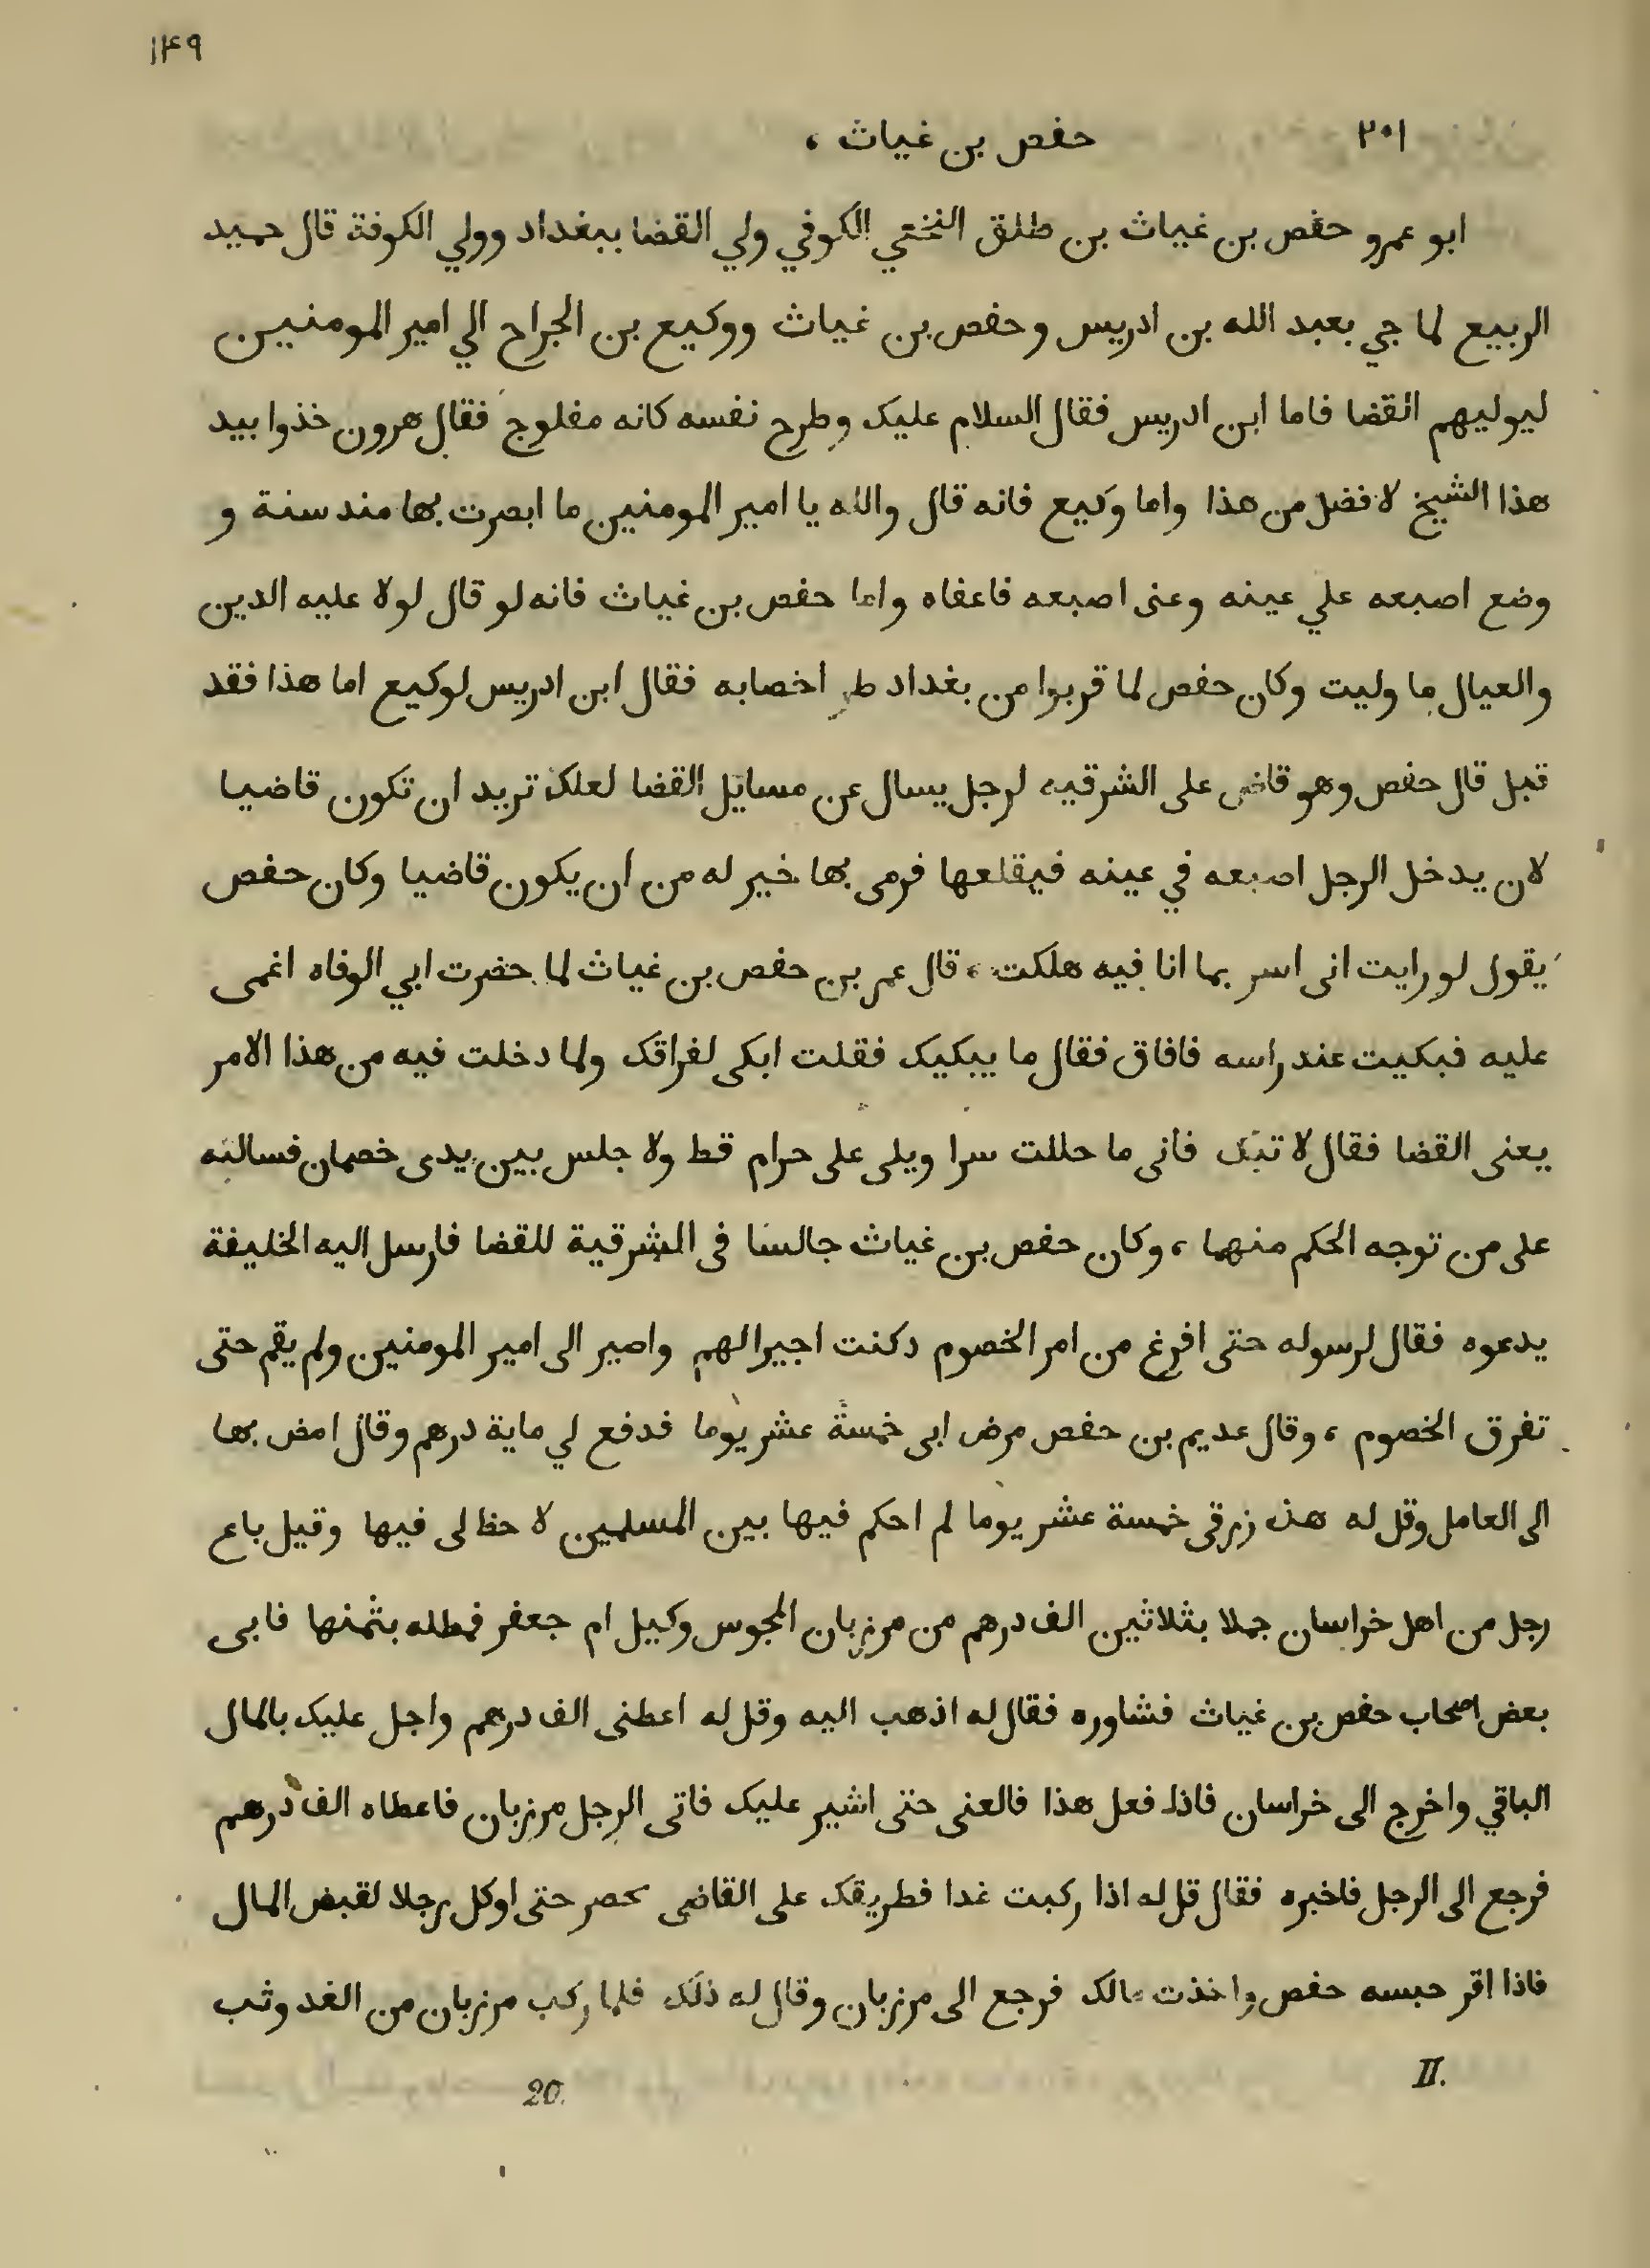 ۱۴۹
۲۰۱ حفص بن غياث ،
ابو عمرو حفص بن غياث بن طلق النخعي الكوفي ولي القضا ببغداد وولي الكوفة قال حميد
الربيع لما جي بعبد الله بن ادريس وحفص بن غياث ووكيع بن الجراح الي امير المومنين
ليوليهم القضا فاما ابن ادريس فقال السلام عليك وطرح نفسه كانه مفلوج فقال هرون خذوا بيد
هذا الشيخ لا فضل من هذا واما وكيع فانه قال والله يا امير المومنين ما ابصرت بها منذ سنة و
وضع اصبعه علي عينه وعنى اصبعه فاعفاه واما حفص بن غياث فانه لو قال لولا عليه الدين
والعيال ما وليت وكان حفص لما قربوا من بغداد طر اخصابه فقال ابن ادريس لوكيع اما هذا فقد
قبل قال حفص وهو قاض على الشرقيه لرجل يسال عن مسايل القضا لعلك تريد ان تكون قاضيا
لان يدخل الرجل اصبعه في عينه فيقلعها فرمى بها خير له من ان يكون قاضيا وكان حفص
يقول لو رايت انى اسر بما انا فيه هلكت ، قال عمر بن حفص بن غياث لما حضرت ابي الوفاه اغمى
عليه فبكيت عند راسه فافاق فقال ما يبكيك فقلت ابكى لفراقك ولما دخلت فيه من هذا الامر
يعنى القضا فقال لا تبك فانى ما حللت سرا ويلى على حرام قط ولا جلس بين يدى خصمان فسالته
على من توجه الحكم منهما ، وكان حفص بن غياث جالسا فى الشرقية للقضا فارسل اليه الخليفة
يدعوه فقال لرسوله حتى افرغ من امر الخصوم دكنت اجيرا لهم واصير الى امير المومنين ولم يقم حتى
تفرق الخصوم ، وقال عديم بن حفص مرض ابى خمسة عشر يوما فدفع لي ماية درهم وقال امض بها
الى العامل وقل له هذ زرقى خمسة عشر يوما لم احكم فيها بين المسلمين لا حظ لى فيها وقيل باع
رجل من اهل خراسان جملا بثلاثين الف درهم من مرزبان المجوس وكيل ام جعفر فمطله بثمنها فابى
بعض اصحاب حفص بن غياث فشاوره فقال له اذهب اليه وقل له اعطنى الف درهم واجل عليك بالمال
الباقي واخرج الى خراسان فاذا فعل هذا فالعنى حتى اشير عليك فاتى الرجل مرزبان فاعطاه الف درهم
فرجع الى الرجل فاخبره فقال قل له اذا ركبت غدا فطريقك على القاضى تحصر حتى اوكل رجلا لقبض المال
فاذا اقر حبسه حفص واخذت مالك فرجع الى مرزبان وقال له ذلك فلما ركب مرزبان من الغد وثب
II. 20.